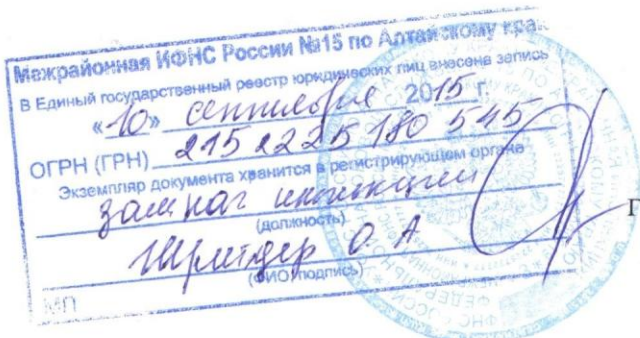 Межрайонная ИФНС России №15 по Алтайскому кра
В Единый государственный реестр юридических лиц внесена запись
«10» сентября 2015 г.
ОГРН (ГРН) 215 2225 180 545
Экземпляр документа хранится в регистрирующем органе
зам нач инспекции
(должность)
О. А.
(ФИО, подпись)
МП
Г